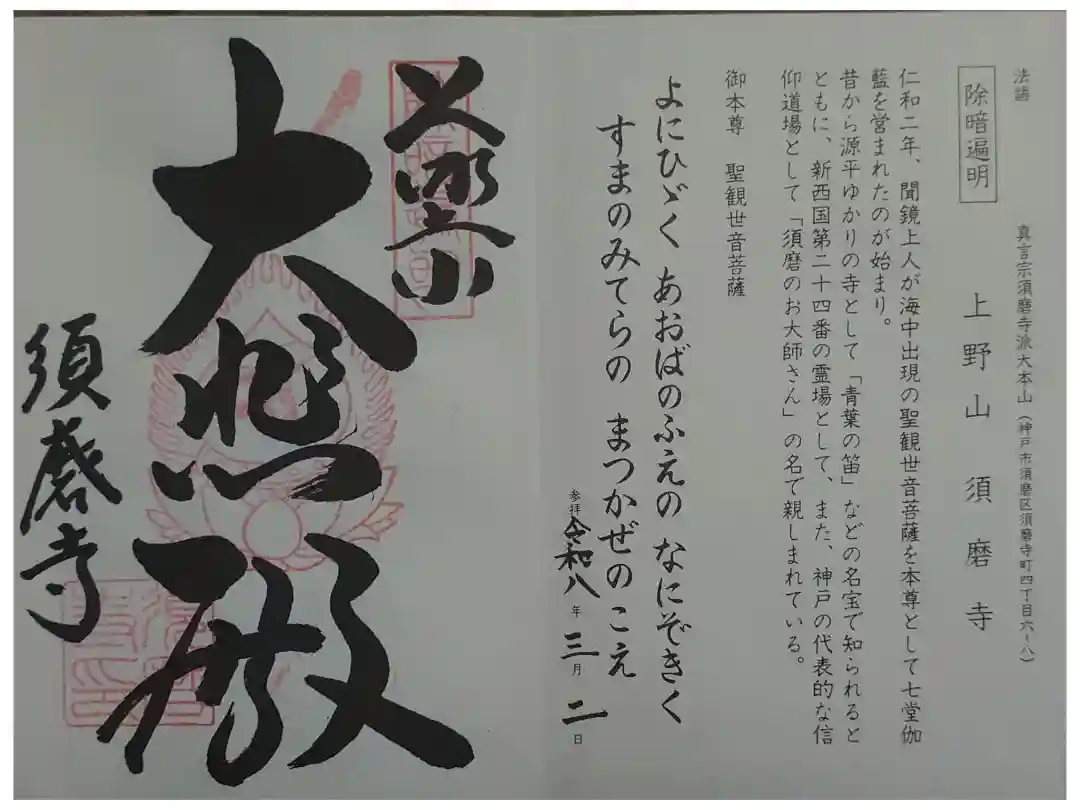 法語
除暗遍明
真言宗須磨寺派大本山（神戸市須磨区須磨寺町四丁目六ー八）
上野山　須磨寺
仁和二年、聞鏡上人が海中出現の聖観世音菩薩を本尊として七堂伽
藍を営まれたのが始まり。
昔から源平ゆかりの寺として「青葉の笛」などの名宝で知られると
ともに、新西国第二十四番の霊場として、また、神戸の代表的な信
仰道場として「須磨のお大師さん」の名で親しまれている。
御本尊　聖観世音菩薩
よにひゞく あおばのふえの なにぞきく
すまのみてらの まつかぜのこえ
参拝 令和八年 三月 二日
大悲殿
須磨寺